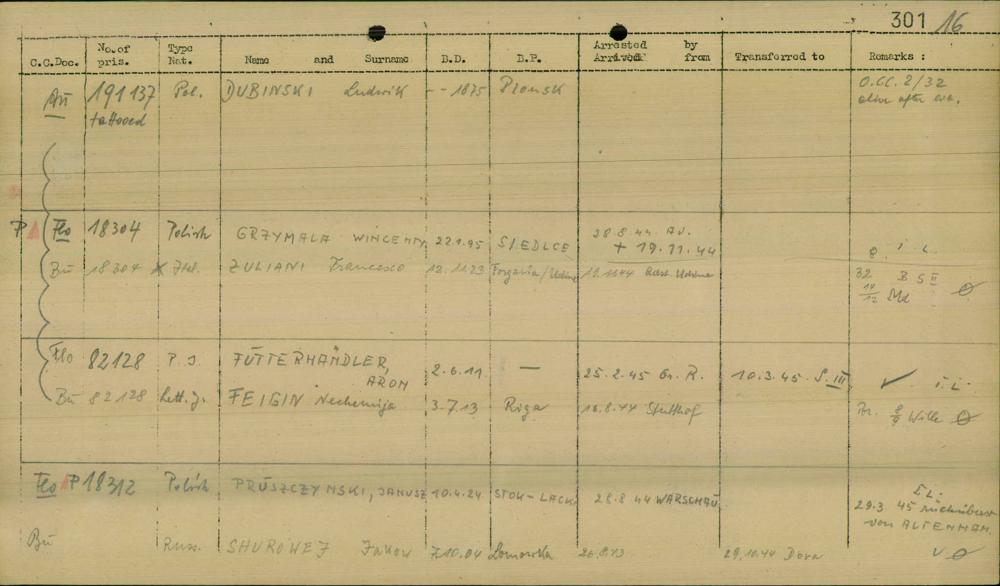 301 16
C.C.Doc. No.of pris. Type Nat. Name and Surname B.D. B.P. Arrested by Arrived from Transferred to Remarks :
Au 191137 Pol. DUBINSKI Ludwik - - 1875 Plonsk O.CC. 2/32
tattooed
P Flo 18304 Polish GRZYMALA WINCENTY 22.1.95 SIEDLCE 28.8.44 AU.
+ 19.11.44
i. L.
Bu 18304 X Ital. ZULIANI Francesco 12.11.23 32 B S II
14/12 Md
Flo 82128 P.J. FUTTERHÄNDLER, ARON 2.6.11 — 25.2.45 Gr. R. 10.3.45 S.III ✓ i.L.
Bu 82128 Lett.J. FEIGIN Nechemija 3.7.13 Riga 16.8.44 Stutthof 8/9 Wille
Flo P 18312 Polish PRUSZCZYNSKI, JANUSZ 10.4.24 STOK-LACK 28.8 44 WARSCHAU
I.L.
29.3 45
von ALTENHAM.
Bu Russ. SHUROWEJ Jakow 7.10.04 26.8.43 29.10.44 Dora